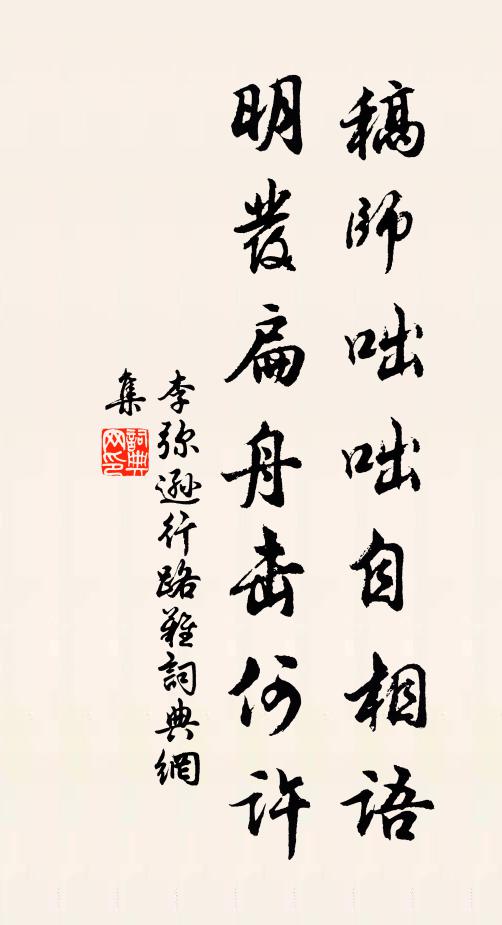 稿师咄咄自相语
明发扁舟击何许
李弥逊行路难词典网
集
詞典
网印